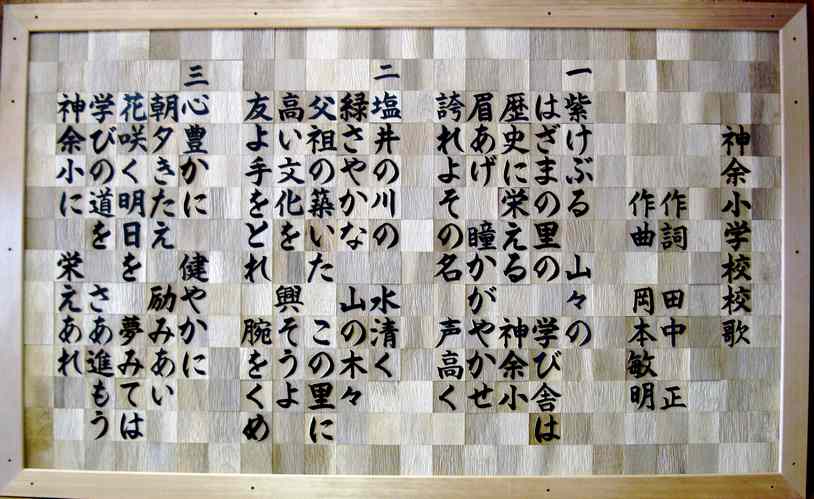 神余小学校校歌
作詞　田中　正
作曲　岡本敏明
一 紫けぶる　山々の
はざまの里の　学び舎は
歴史に栄える　神余小
眉あげ　瞳かがやかせ
誇れよその名　声高く
二 塩井の川の　水清く
緑さやかな　山の木々
父祖の築いた　この里に
高い文化を　興そうよ
友よ手をとれ　腕をくめ
三 心豊かに　健やかに
朝夕きたえ　励みあい
花咲く明日を　夢みては
学びの道を　さあ進もう
神余小に　栄えあれ